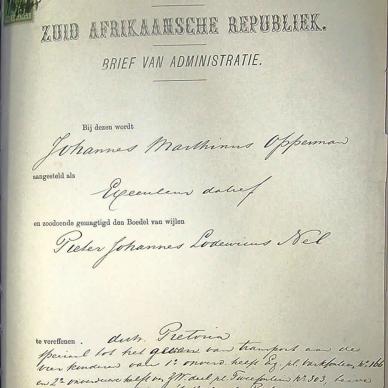 ZUID AFRIKAANSCHE REPUBLIEK.
BRIEF VAN ADMINISTRATIE.
Bij dezen wordt
Johannes Marthinus Opperman
aangesteld als
Executeur datief
en zoodoende gemagtigd den Boedel van wijlen
Pieter Johannes Lodewicus Nel
te vereffenen. distr. Pretoria
speciaal tot het geven van transport aan de
vier kinderen van 1º onverd. helft Eg. pl. Varkfontein, No.
en 2º onverdeelde helft van ZW. deel pl. Tweefontein No. 303,